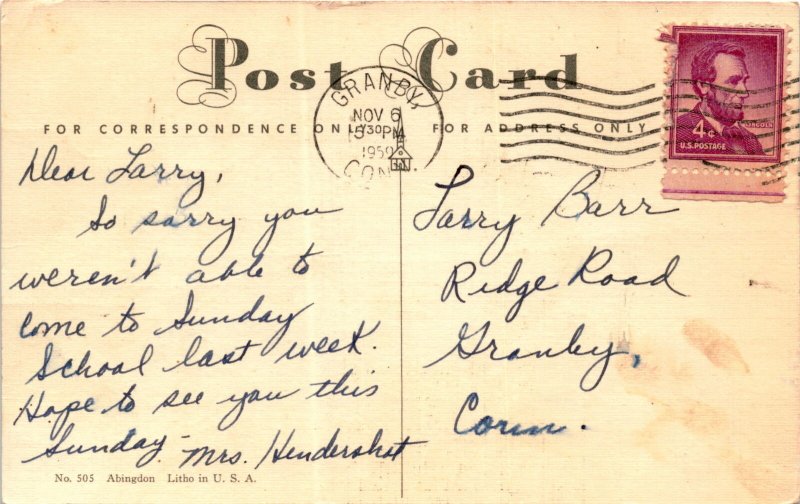 Post Card
FOR CORRESPONDENCE ONLY
FOR ADDRESS ONLY
GRANBY,
NOV 6
530PM
1959
CONN
4¢
LINCOLN
U.S. POSTAGE
Dear Larry,
So sorry you
weren't able to
come to Sunday
School last week.
Hope to see you this
Sunday - Mrs. Hendershot
Larry Barr
Ridge Road
Granby,
Conn.
No. 505 Abingdon Litho in U. S. A.